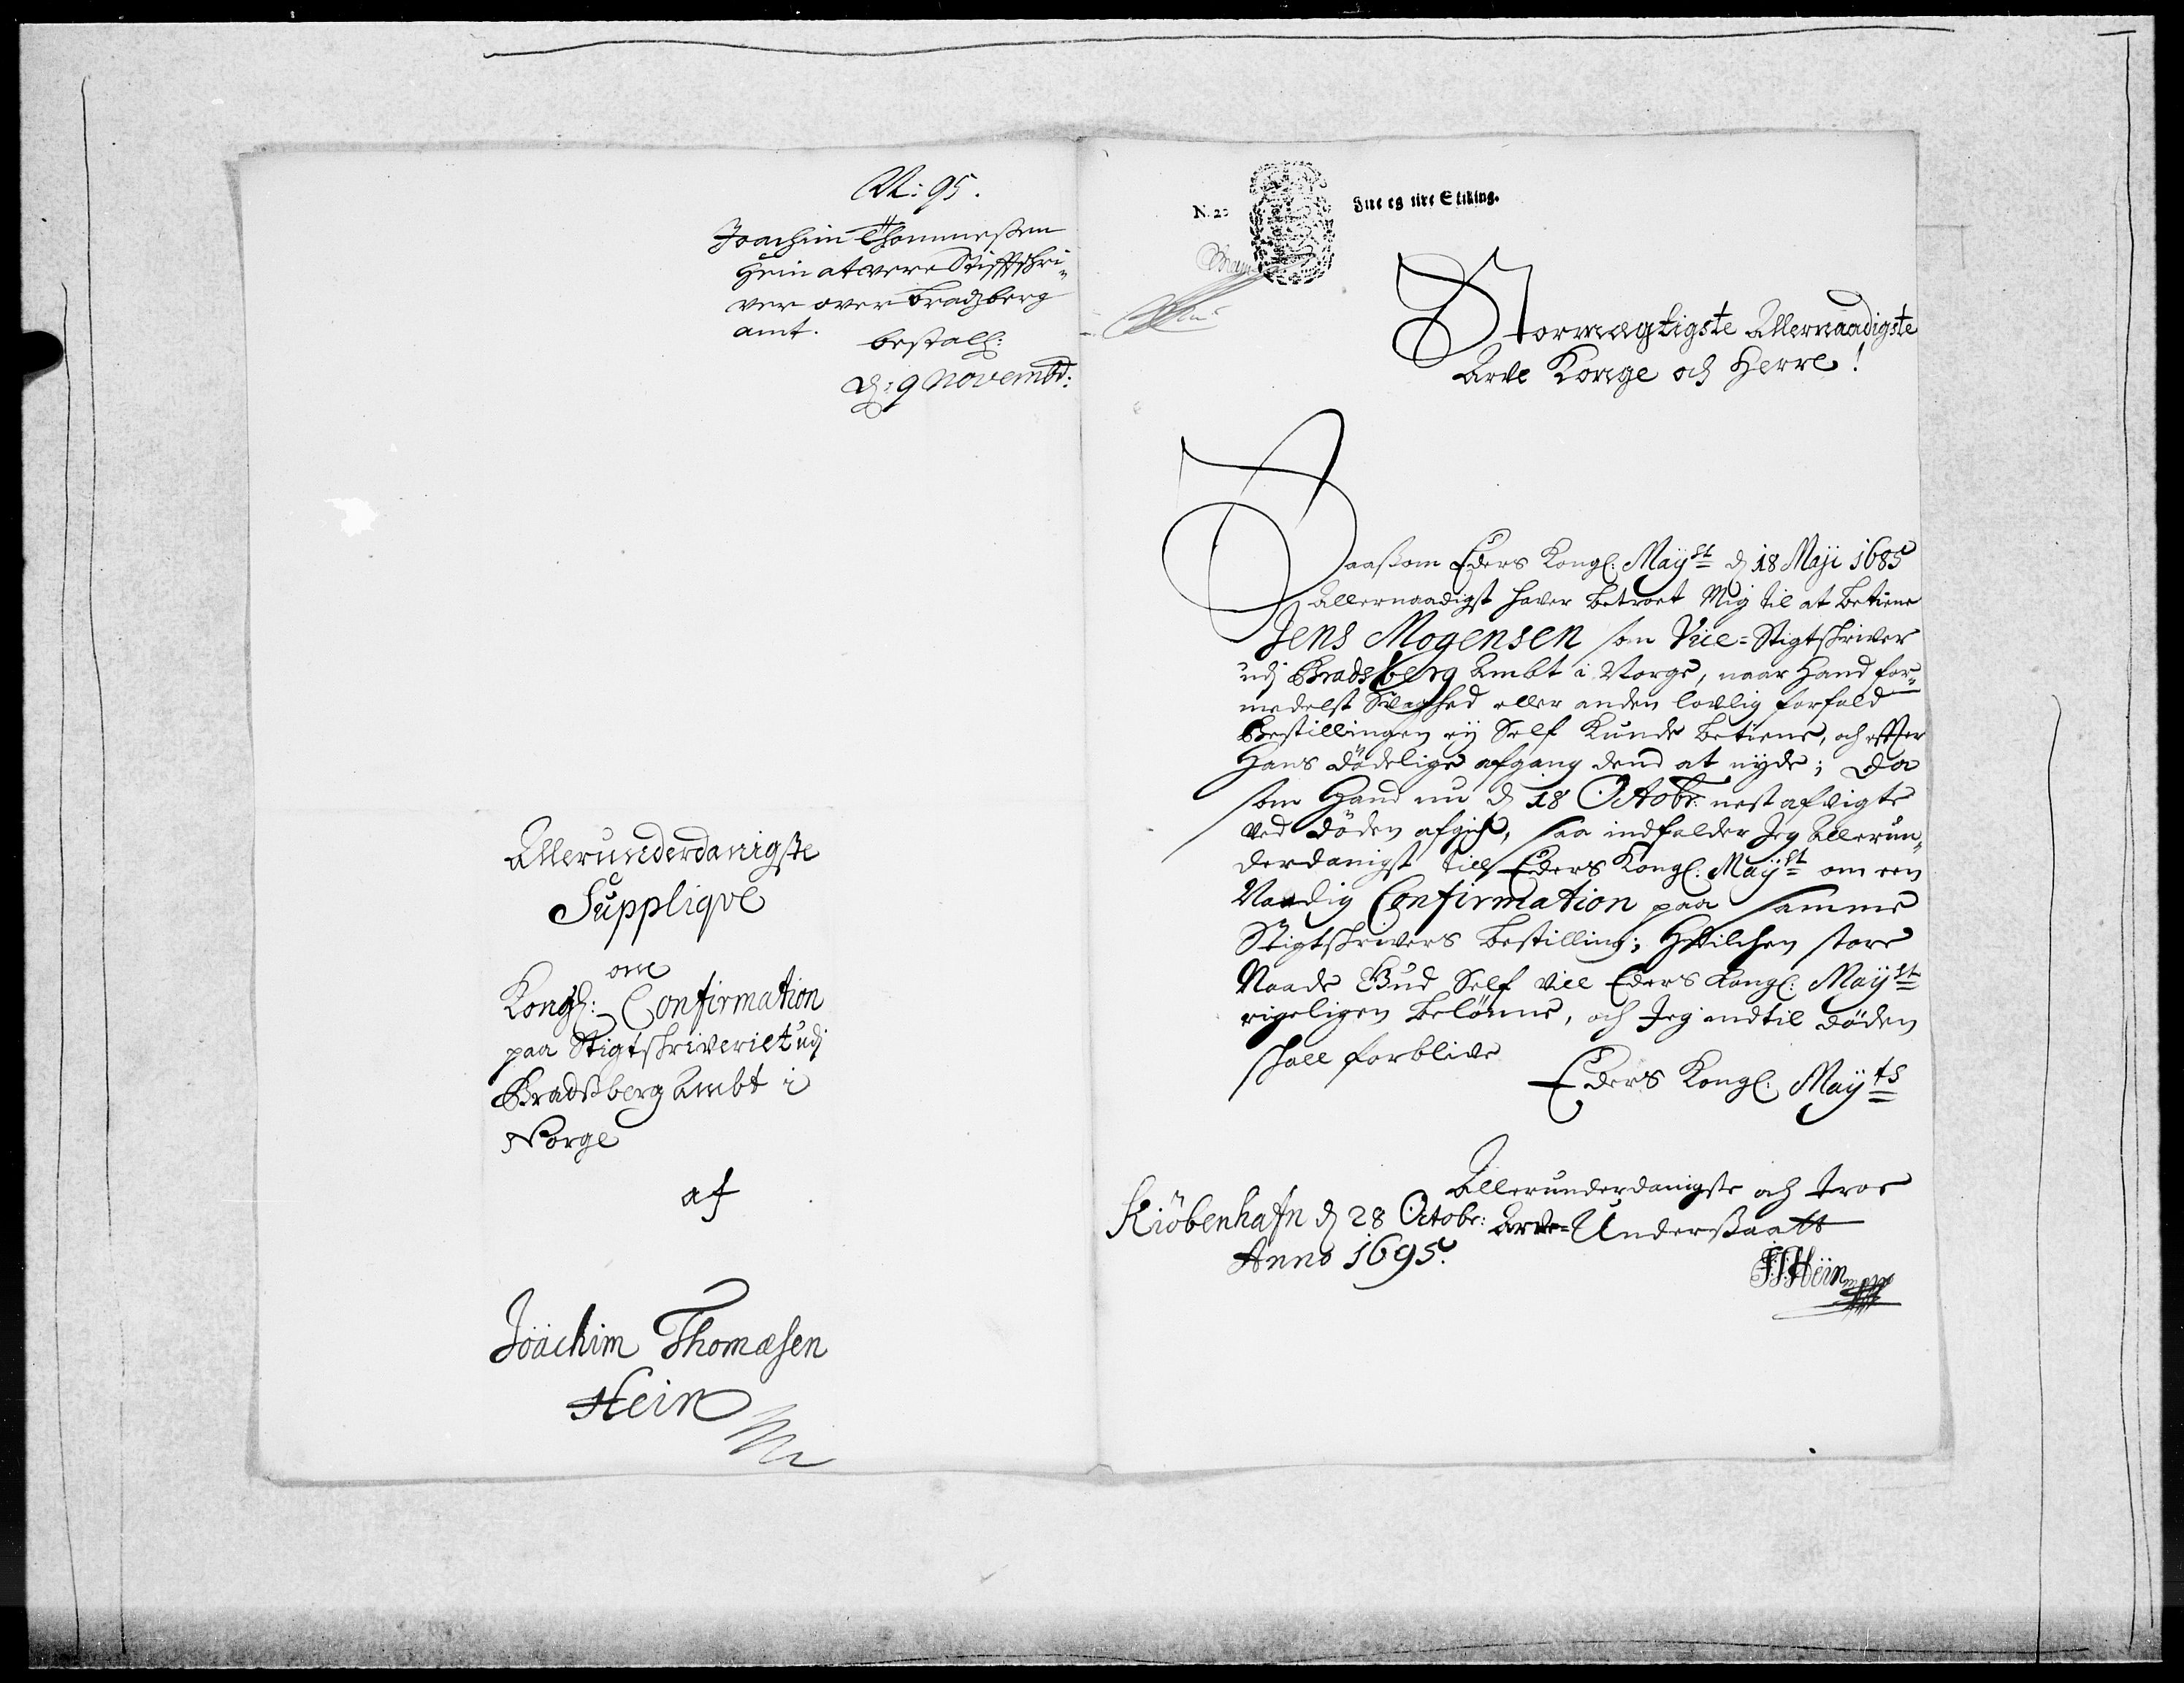 N: 95.
Joachim Thommesen
Hein at være Stifftschri-
ver over Bradzberg
amt.
bestall:
d: 9 Novembr:
Allerunderdanigste
Supplique
om
Kongl: Confirmation
paa Stigtskriveriet udj
Bradßberg Ambt i
Norge
af
Joachim Thomæsen
Hein
N. 2
Fire og tive Skilling.
Stormægtigste Allernaadigste
Arve Konge och Herre!
Saasom Eders Kongl: Mayst d 18 Maji 1685
Allernaadigst hafver betroet Mig til at betiene
Jens Mogensen som Vice-Stigtskriver
udj Bradsberg Ambt i Norge, naar Hand for-
medelst Svaghed eller anden lovlig forfald
Bestillingen ey Self kunde betiene, och effter
Hans dödelige afgang dend at nyde; Da
som Hand nu d 18 Octobr: nest afvigte
ved döden afgick, saa indfalder Jeg Allerun-
derdanigst till Eders Kongl: Mayst om een
Naadig Confirmation paa samme
Stigtskrivers bestilling; Hvilchen store
Naade Gud Self vill Eders Kongl: Mayst
rigeligen belönne, och Jeg indtil döden
skall forblive
Eders Kongl: Mayts
Allerunderdanigste och troe
Kiöbenhafn d 28 Octobr: Arve-Undersaatt
Anno 1695.
J:T:Hein